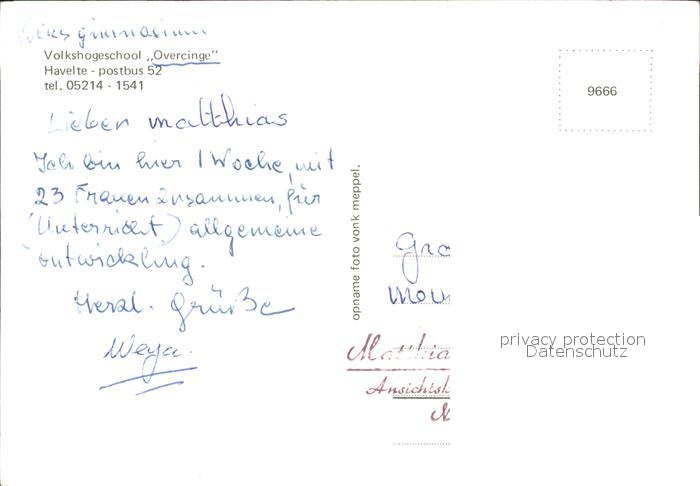 gimnasium
Volkshogeschool „Overcinge"
Havelte - postbus 52
tel. 05214 - 1541
9666
Lieber Matthias
Ich bin hier 1 Woche, mit
23 Frauen zusammen, für
(Unterricht) allgemeine
entwickling.
Herzl. Grüße
Weya.
opname foto vonk meppel.
Gro
Mou
Matthia
Ansichtsk
N
privacy protection
Datenschutz